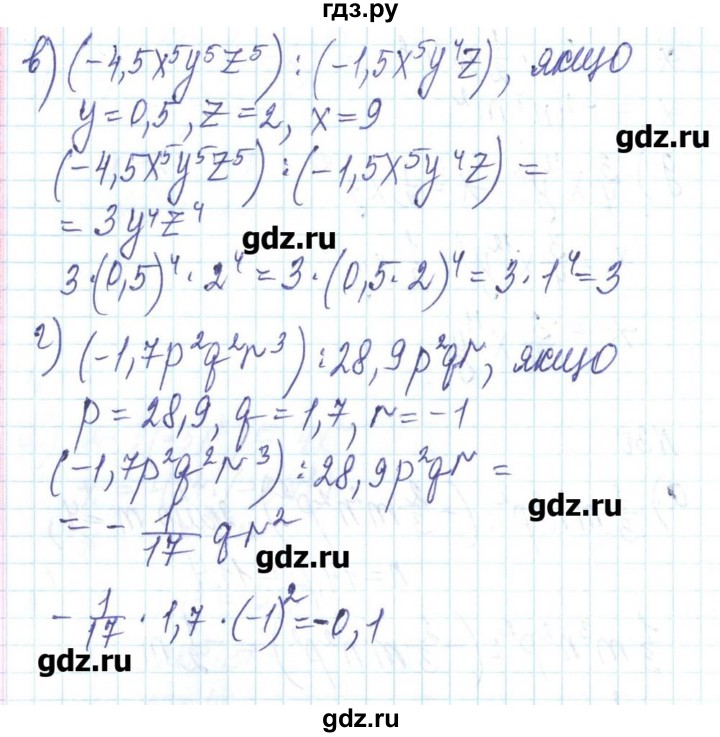 гдз.ру
в) (-4,5x⁵y⁵z⁵) : (-1,5x⁵y⁴z), якщо
y = 0,5, z = 2, x = 9
gdz.ru
(-4,5x⁵y⁵z⁵) : (-1,5x⁵y⁴z) =
= 3y⁴z⁴
gdz.ru
3·(0,5)⁴·2⁴ = 3·(0,5·2)⁴ = 3·1⁴ = 3
г) (-1,7p²q²r³) : 28,9p²qr, якщо
p = 28,9, q = 1,7, r = -1
(-1,7p²q²r³) : 28,9p²qr =
gdz.ru
= - 1/17 qr²
gdz.ru
- 1/17 · 1,7 · (-1)² = -0,1
gdz.ru
gdz.ru